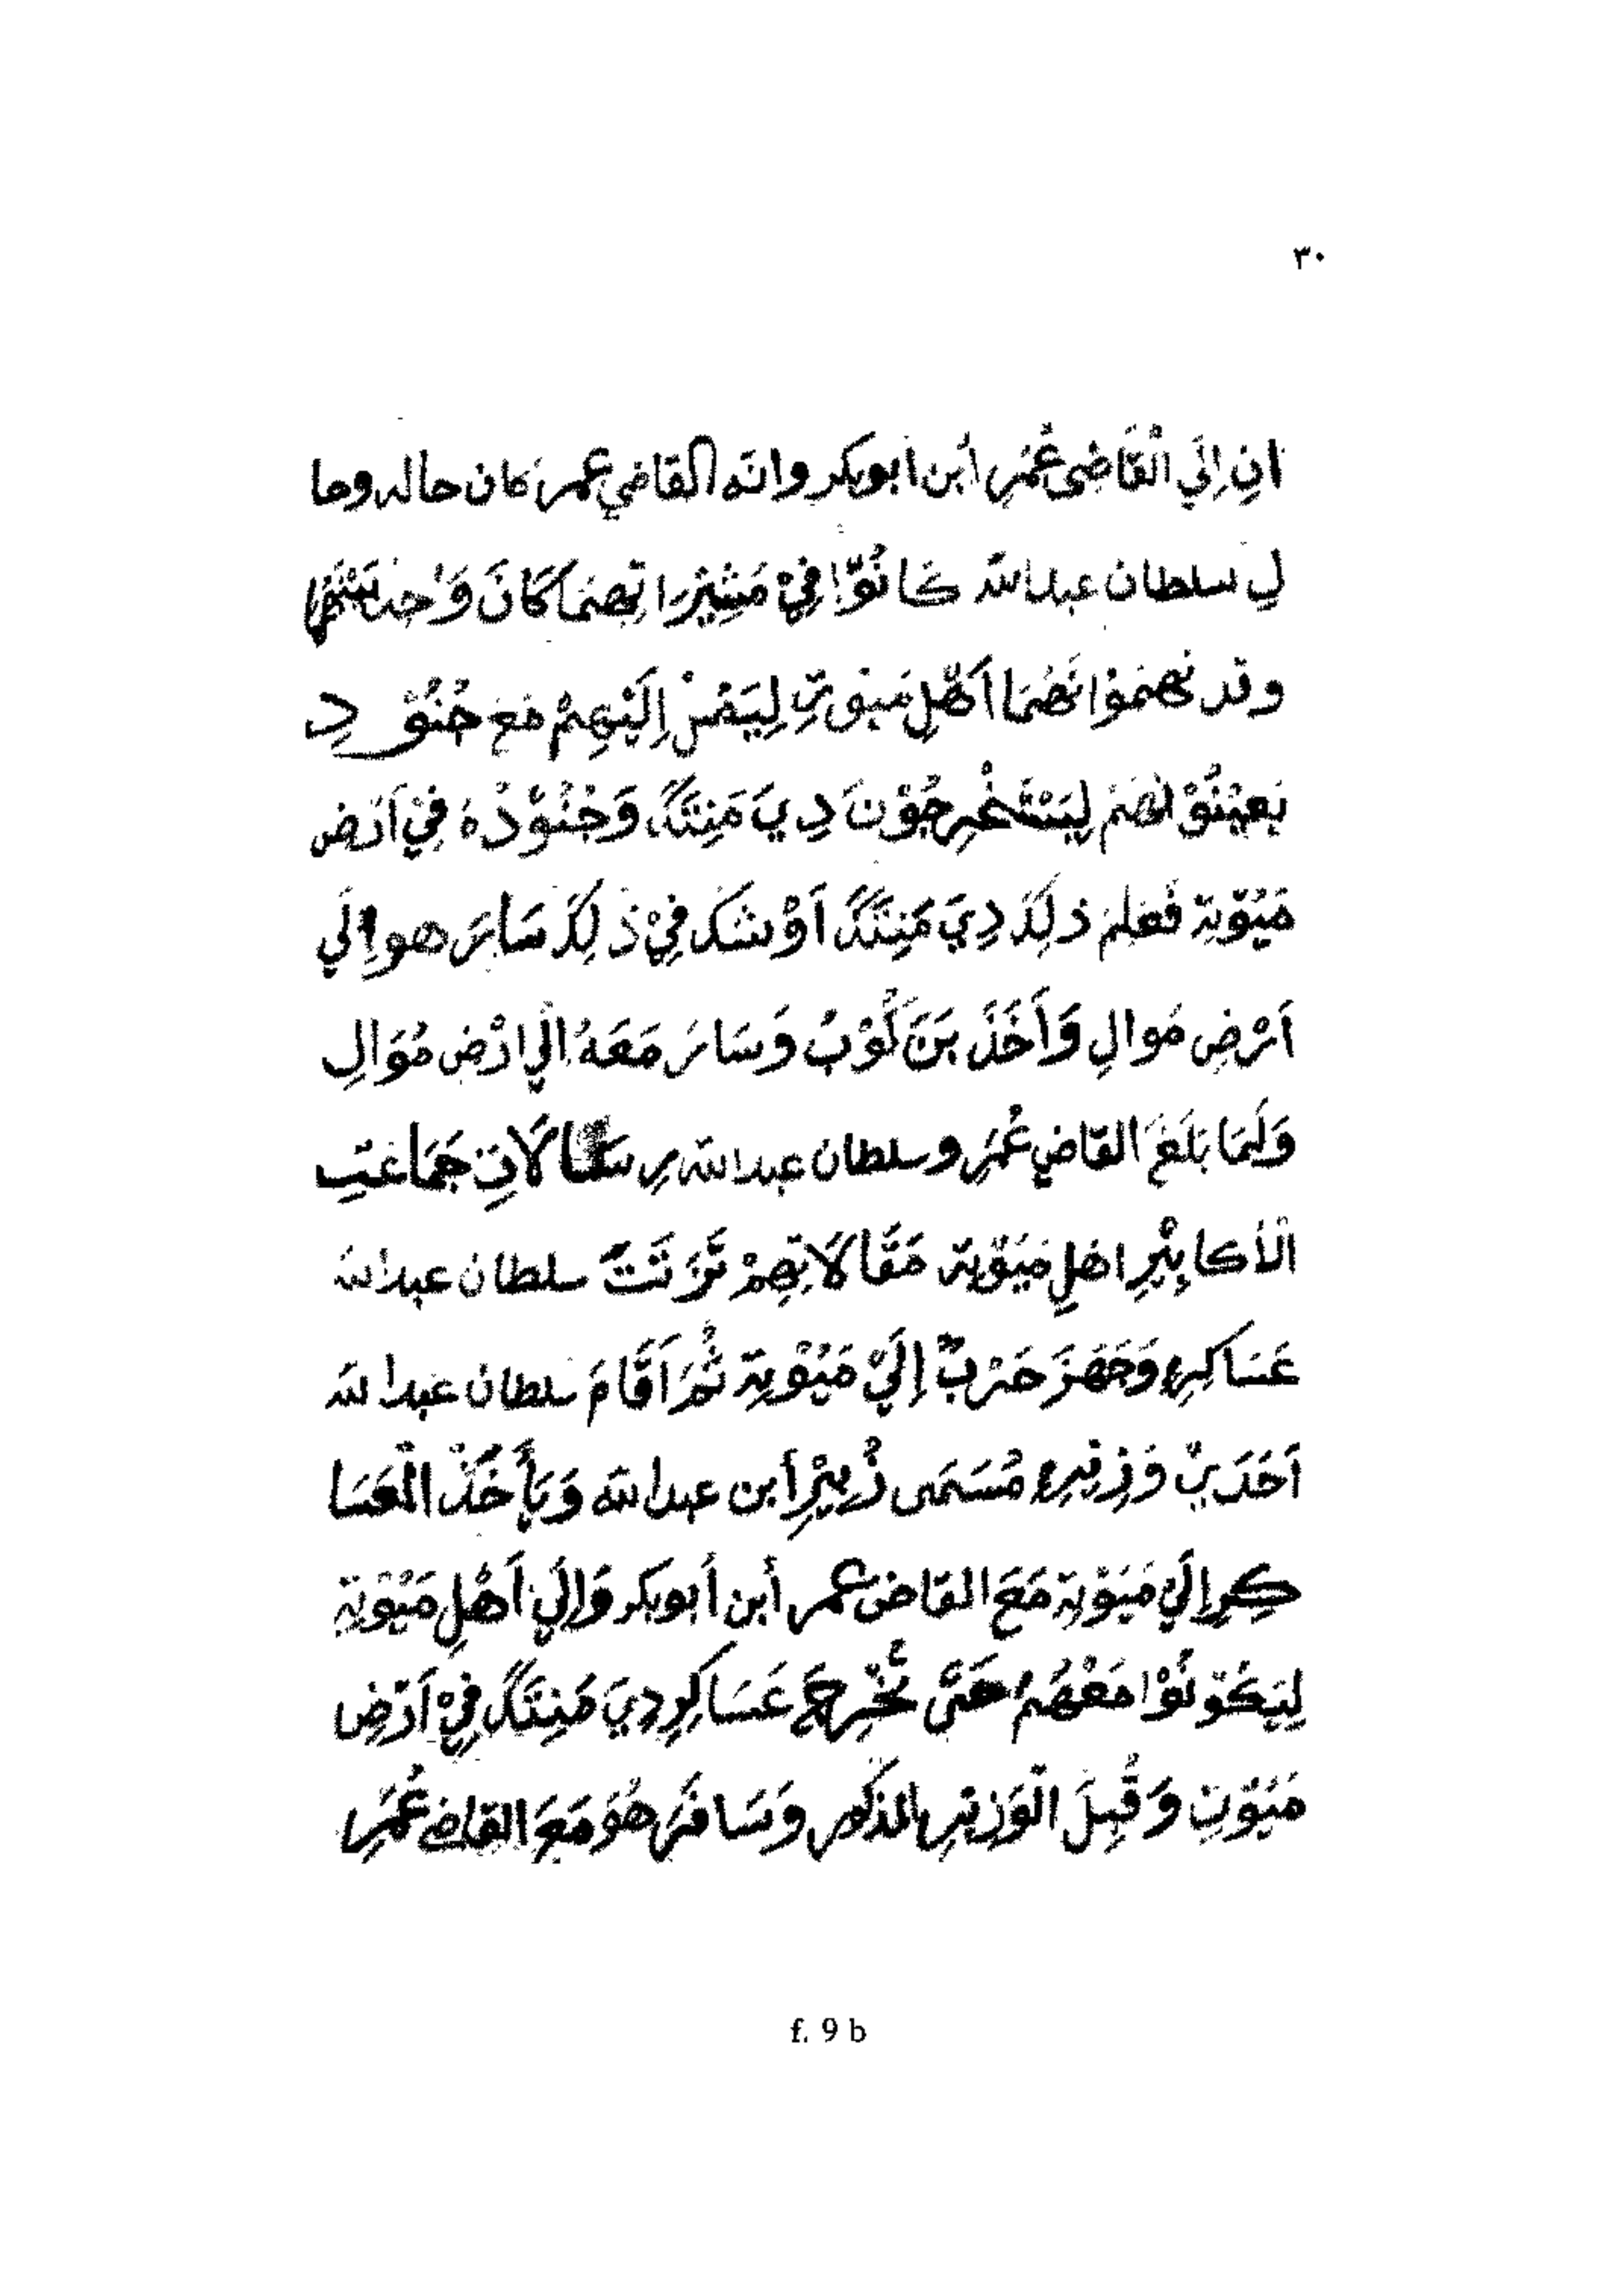 ٣٠
انِ اِلَي الْقَاضِى عُمَرِ أبن أبوبكر وانَه القاضي عمرَ كان حاله وحا
لِ سلطان عبدالله كانُوّا فِيْ مَشِيْرَاتِهِمَا كَانَ وَاحِد
وقد نهمَوْا نَهُمَا اَهْلِ مَيْوتِ لِيَمُرْ اِلَيْهِمْ مَعَ جُنُوْدِ
يَعِيْنُوْا لَهُمْ لِيَسْتَخْرِجُوْنَ دِيَ مَنِتَدَ وَجُنُوْدُهُ فِيْ اَرْض
مَيُوّتِة فَعَلِمَ ذلِكَ دِيَ مَنِتَدَ اَوْ شَكَ فِيْ ذلِكَ سَارَ هو اِلَي
اَرْضِ مَوالِ وَاَخَذَ بَنَ كُوْبُ وَسَارَ مَعَهُ اِلَي ارْضِ مُوَالِ
وَلَمَا بَلَغَ القاضي عُمَرُ وسلطان عبدالله رِسَالَاتِ جَمَاعَتِ
الْاَكابِيْرِ اهلِ مَيُوّتِة مَقَالَاتِهِمْ تَرَتَبَتْ سلطان عبدالله
عَسَاكِرِهِ وَجَهَزَ حَرْبٌ اِلَيْ مَيُوْتِة ثُمَ اَقَامَ سلطان عبدالله
اَحَدَيْ وَزِيْرِهِ مُسَمَى زُبِيْرِ أبن عبدالله وَيَأخَذْ الْعَسَا
كِرِ اِلَي مَيُوْتِة مَعَ القاضى عمر أبن أبوبكر وَاِلَي اَهْلِ مَيُوْتِة
لِيَكُوْنُوْا مَعْهُمْ حَتَى تُخْرِجَ عَسَاكِرِ دِيَ مَنِتَدَ فِيْ اَرْضِ
مَيُوّتِ وَقَبِلَ الْوَزِيْرِ المذكور وَسَافَرَ هُوَ مَعَ القاضي عُمَرِ
f. 9 b